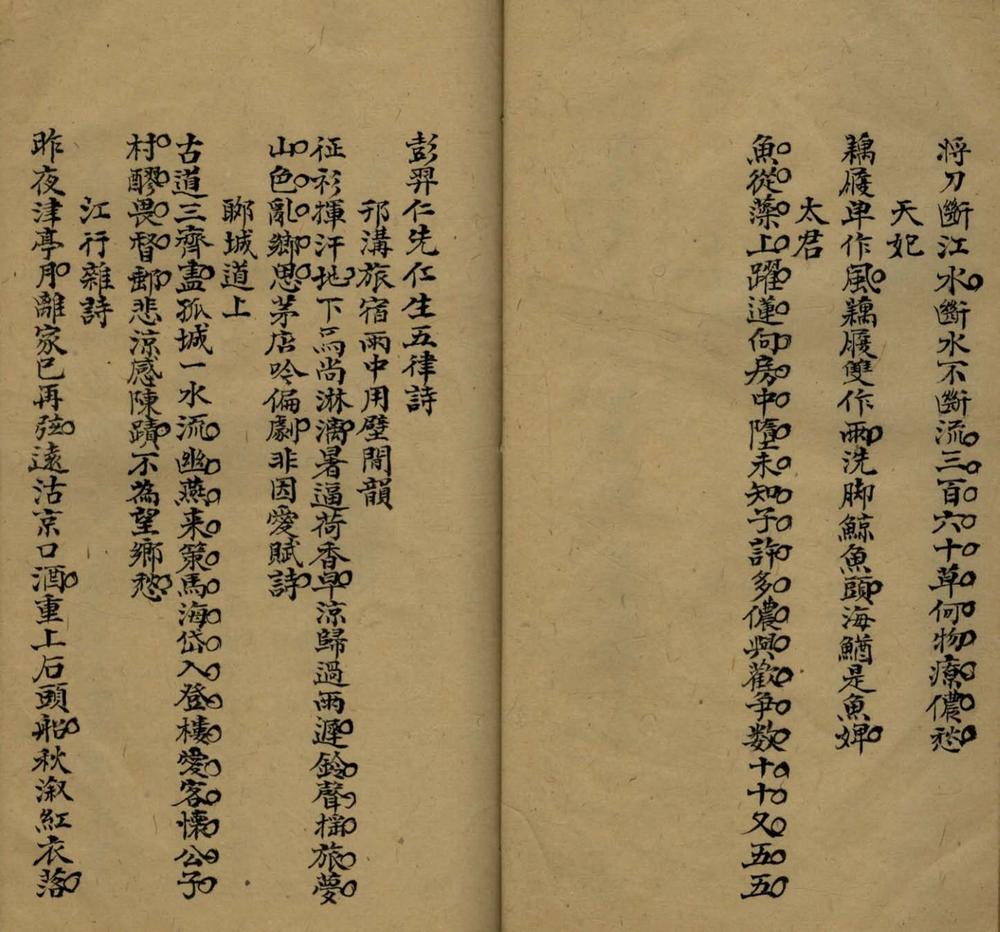 將刀斷江水斷水不斷流三百六十草何物療儂愁
天妃
藕履単作風藕履雙作雨洗脚鯨魚頭海鰌是魚婢
太君
魚從藻上躍蓮向房中墮未知子許多儂與歡爭数十十又五五
彭羿仁先仁生五律詩
邗溝旅宿雨中用壁間韻
征衫揮汗地下馬尚淋漓暑逼荷香早涼歸過雨遲鈴聲搖旅夢
山色亂鄉思茅店吟偏劇非因愛賦詩
聊城道上
古道三齊盡孤城一水流幽燕来策馬海岱入登樓愛客懷公子
村醪畏督郵悲涼感陳蹟不為望鄉愁
江行雜詩
昨夜津亭月離家已再弦遠沽京口酒重上石頭船秋溆紅衣落